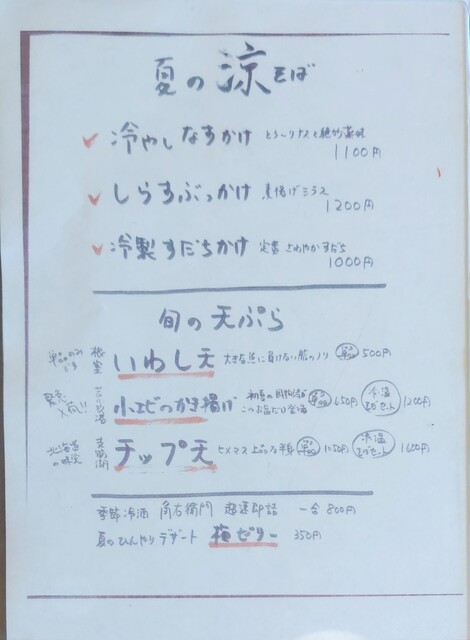 夏の涼そば
冷やしなすかけ とろ〜りナスと絶妙薬味
1100円
しらすぶっかけ 素揚げシラス
1200円
冷製すだちかけ 定番 さわやかすだち
1000円
旬の天ぷら
単品のみです 根室 いわし天 大きな魚に負けない脂のノリ 単品 500円
発売 苫小牧港 小エビのかき揚げ 単品 650円 冷温そばセット 1200円
北海道の味覚 支笏湖 チップ天 ヒメマス 上品な半身 単品 1050円 冷温そばセット 1600円
季節冷酒 角右衛門 超速即詰 一合 800円
夏のひんやりデザート 梅ゼリー 350円